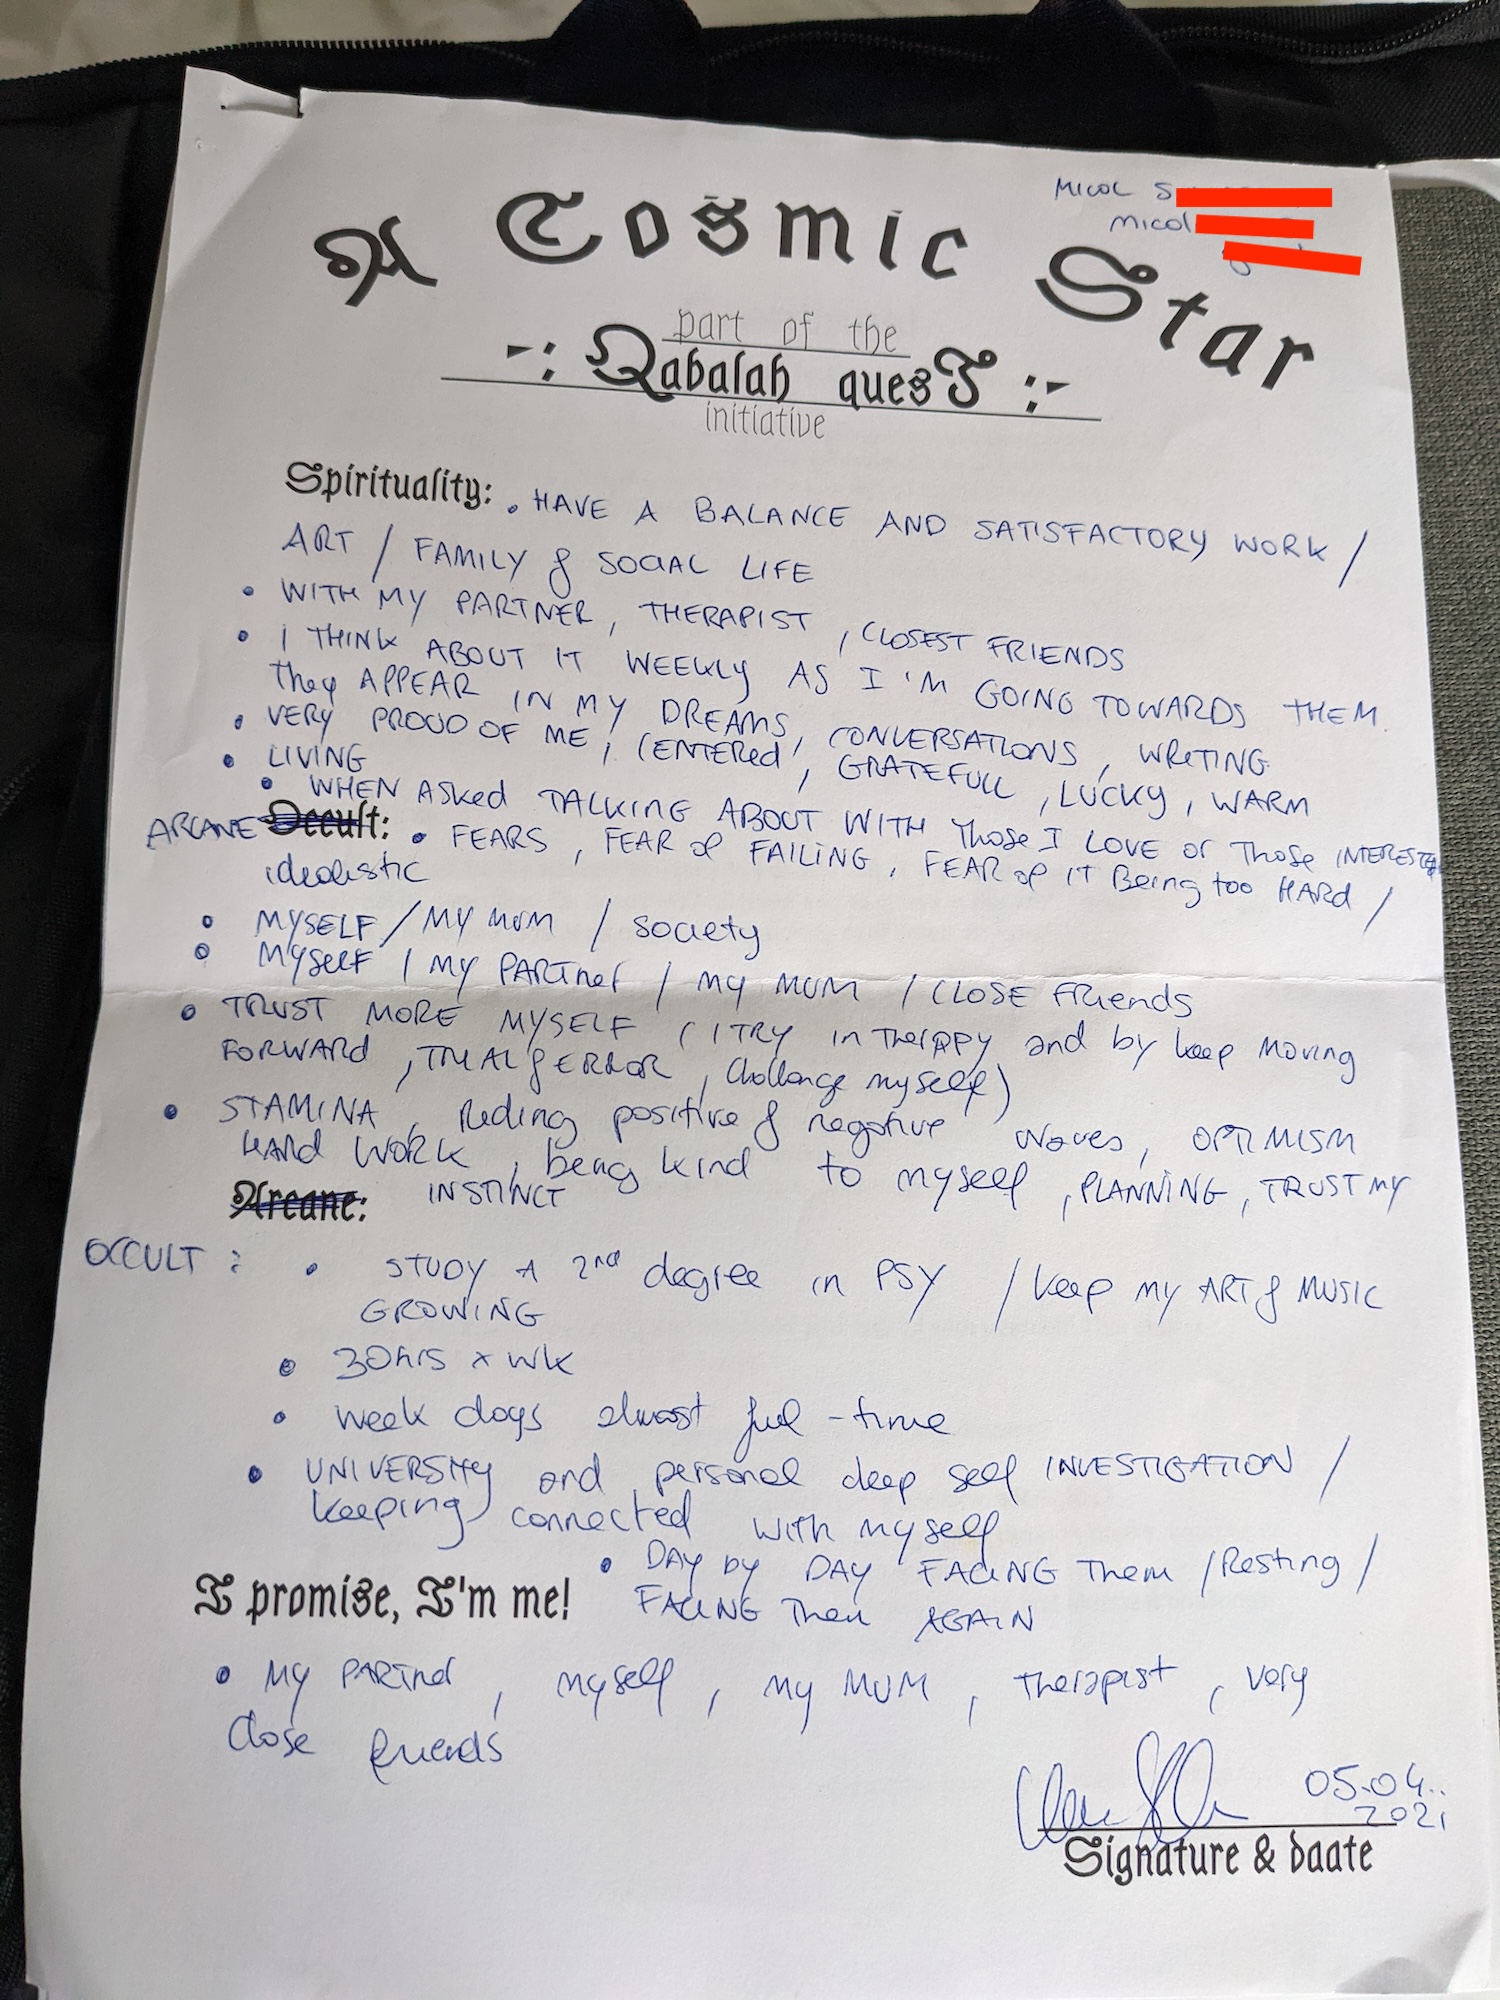 MICOL S
micol
A Cosmic Star
part of the
-: Qabalah quesT :-
initiative
Spirituality: • HAVE A BALANCE AND SATISFACTORY WORK /
ART / FAMILY & SOCIAL LIFE
• WITH MY PARTNER, THERAPIST, CLOSEST FRIENDS
• I THINK ABOUT IT WEEKLY AS I'M GOING TOWARDS THEM.
They APPEAR IN MY DREAMS, CONVERSATIONS, WRITING
• VERY PROUD OF ME, CENTERED, GRATEFULL, LUCKY, WARM
• LIVING
• WHEN ASKed TALKING ABOUT WITH Those I LOVE or Those INTERESTED
ARCANE Occult: • FEARS, FEAR of FAILING, FEAR of IT Being too HARD /
idealistic
• MYSELF / MY MUM / society
• MYSELF / MY PARTner / MY MUM / CLOSE FRIends
• TRUST MORE MYSELF (I TRY in THERAPY and by keep MOVING
FORWARD, TRIAL & ERROR, Challenge myself)
• STAMINA, Riding positive & negative waves, OPTIMISM
HARD WORK, being kind to myself, PLANNING, TRUST MY
Arcane: INSTINCT
OCCULT : • STUDY A 2nd degree in PSY / keep MY ART & MUSIC
GROWING
• 30hrs x wk
• week days almost full-time
• UNIVERSITY and personal deep self INVESTIGATION /
keeping connected with myself
• DAY by DAY FACING Them / Resting /
I promise, I'm me! FACING Them AGAIN
• MY PARTner, myself, my MUM, Therapist, very
Close friends
05.04..
2021
Signature & daate